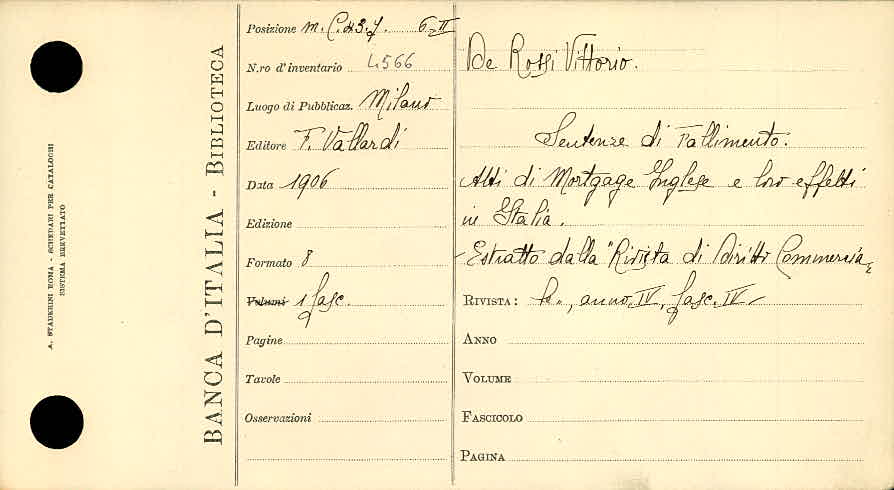 A. STADERINI ROMA - SCHEDARI PER CATALOGHI
SISTEMA BREVETTATO
BANCA D'ITALIA - BIBLIOTECA
Posizione m. C. 43. 7. 6-II
N.ro d'inventario 4566
Luogo di Pubblicaz. Milano
Editore F. Vallardi
Data 1906
Edizione
Formato 8
Volumi 1 fasc.
Pagine
Tavole
Osservazioni
De Rossi Vittorio.
Sentenze di Fallimento.
Atti di Mortgage Inglese e loro effetti
in Italia.
- Estratto dalla "Rivista di Diritto Commercia
RIVISTA: le", anno IV, fasc. IV-
ANNO
VOLUME
FASCICOLO
PAGINA